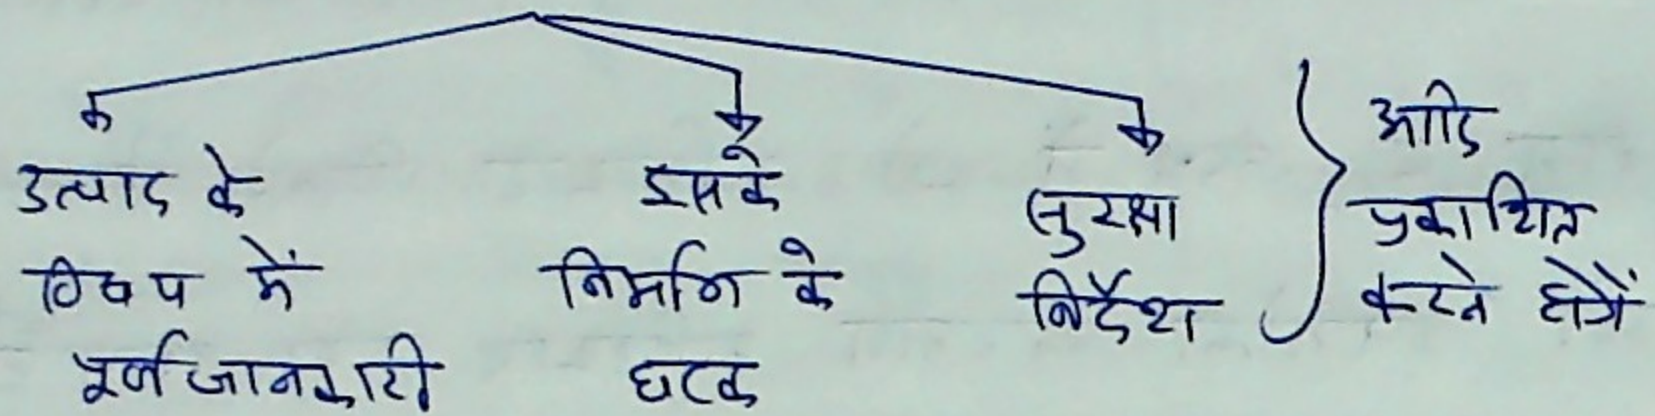 उत्पाद के
विषय में
पूर्ण जानकारी
इसके
निर्माण के
घटक
सुरक्षा
निर्देश
आदि
प्रकाशित
करने होगें